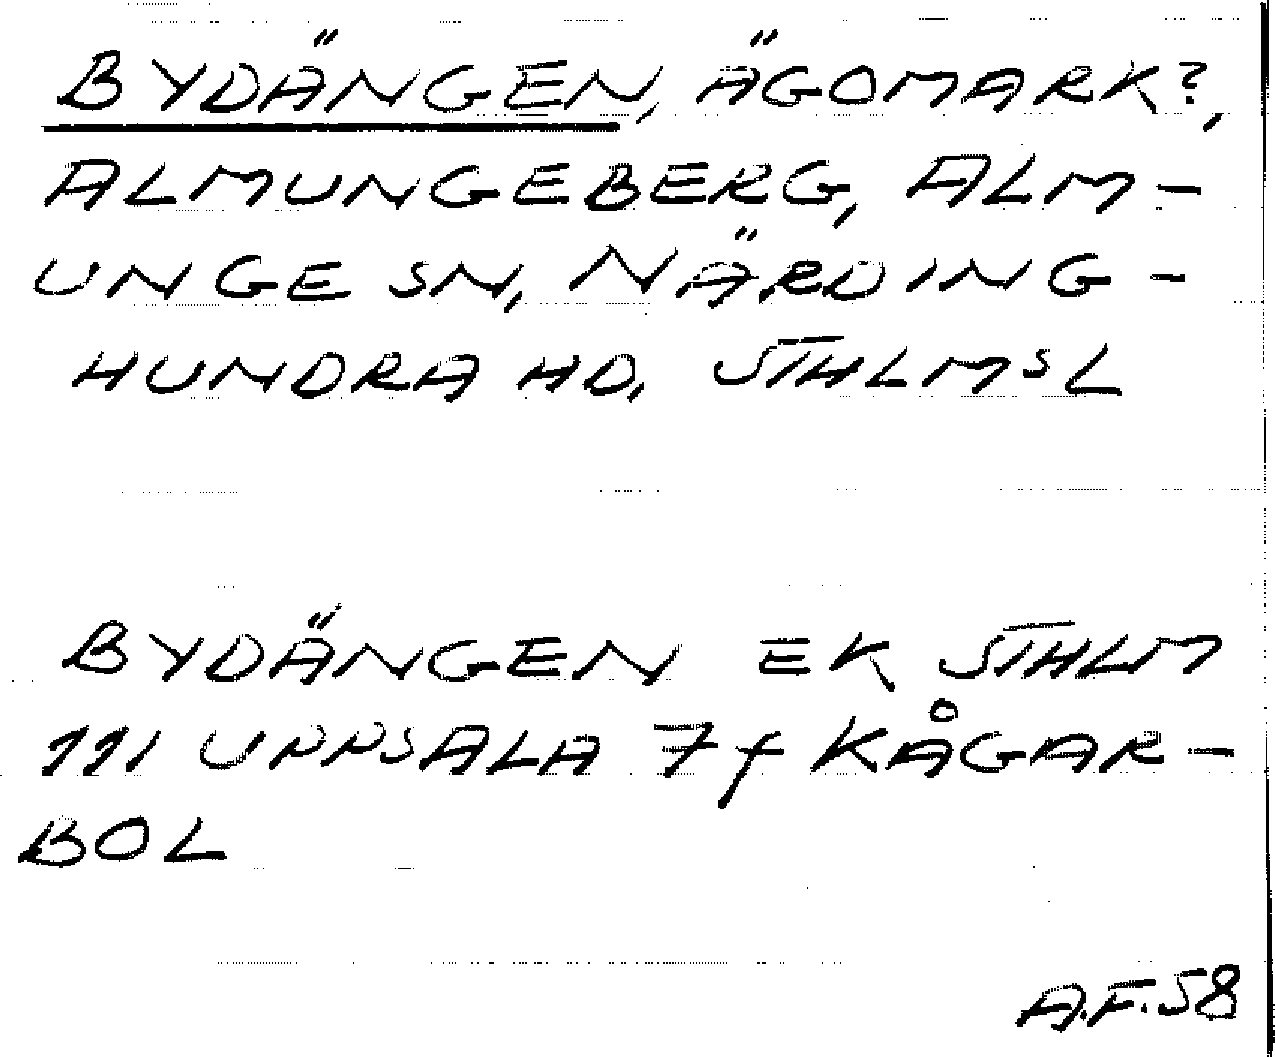 BYDÄNGEN, ÄGOMARK?,
ALMUNGEBERG, ALM-
UNGE SN, NÄRDING-
HUNDRA HD, STHLMSL
BYDÄNGEN EK STHLM
111 UPPSALA 7f KÅGAR-
BOL
A.F.58